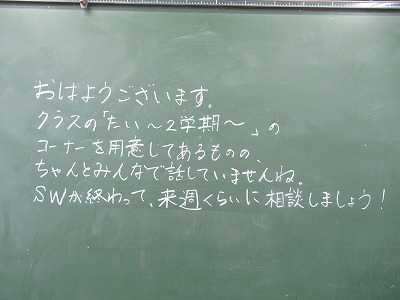 おはようございます。
クラスの「たい〜2学期〜」の
コーナーを用意してあるものの、
ちゃんとみんなで話していませんね。
SWが終わって、来週くらいに相談しましょう！